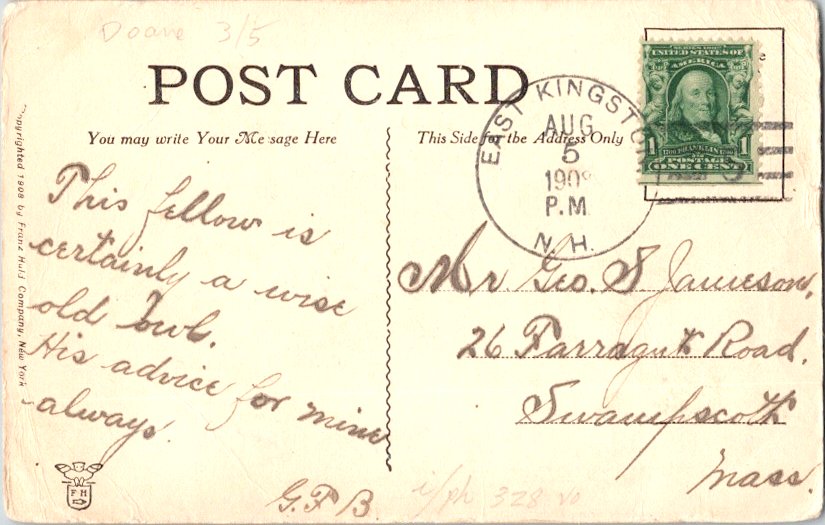 Doane 3/5
POST CARD
You may write Your Message Here
This Side for the Address Only
Copyrighted 1908 by Franz Huld Company, New York
EAST KINGSTO
AUG
5
1908
P.M
N.H.
SERIES 1902
UNITED STATES OF
AMERICA
1 FRANKLIN 1
POSTAGE
ONE CENT
This fellow is
certainly a wise
old owl.
His advice for mine
always.
G.F.B.
Mr. Geo. S Jameson,
26 Farragut Road.
Swampscott
Mass.
FH
328